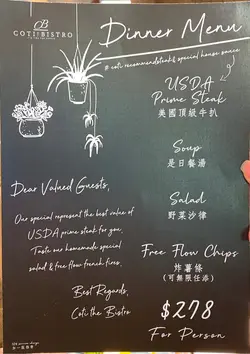 CB
COTI BISTRO
Dinner Menu
# coti recommendsteak & special house sauce
USDA
Prime Steak
美國頂級牛扒
Soup
是日餐湯
Salad
野菜沙律
Free Flow Chips
炸薯條
(可無限任添)
$278
For Person
Dear Valued Guests,
Our special represent the best value of
USDA prime steak for you.
Taste our homemade special
salad & free flow french fires.
Best Regards,
Coti the Bistro